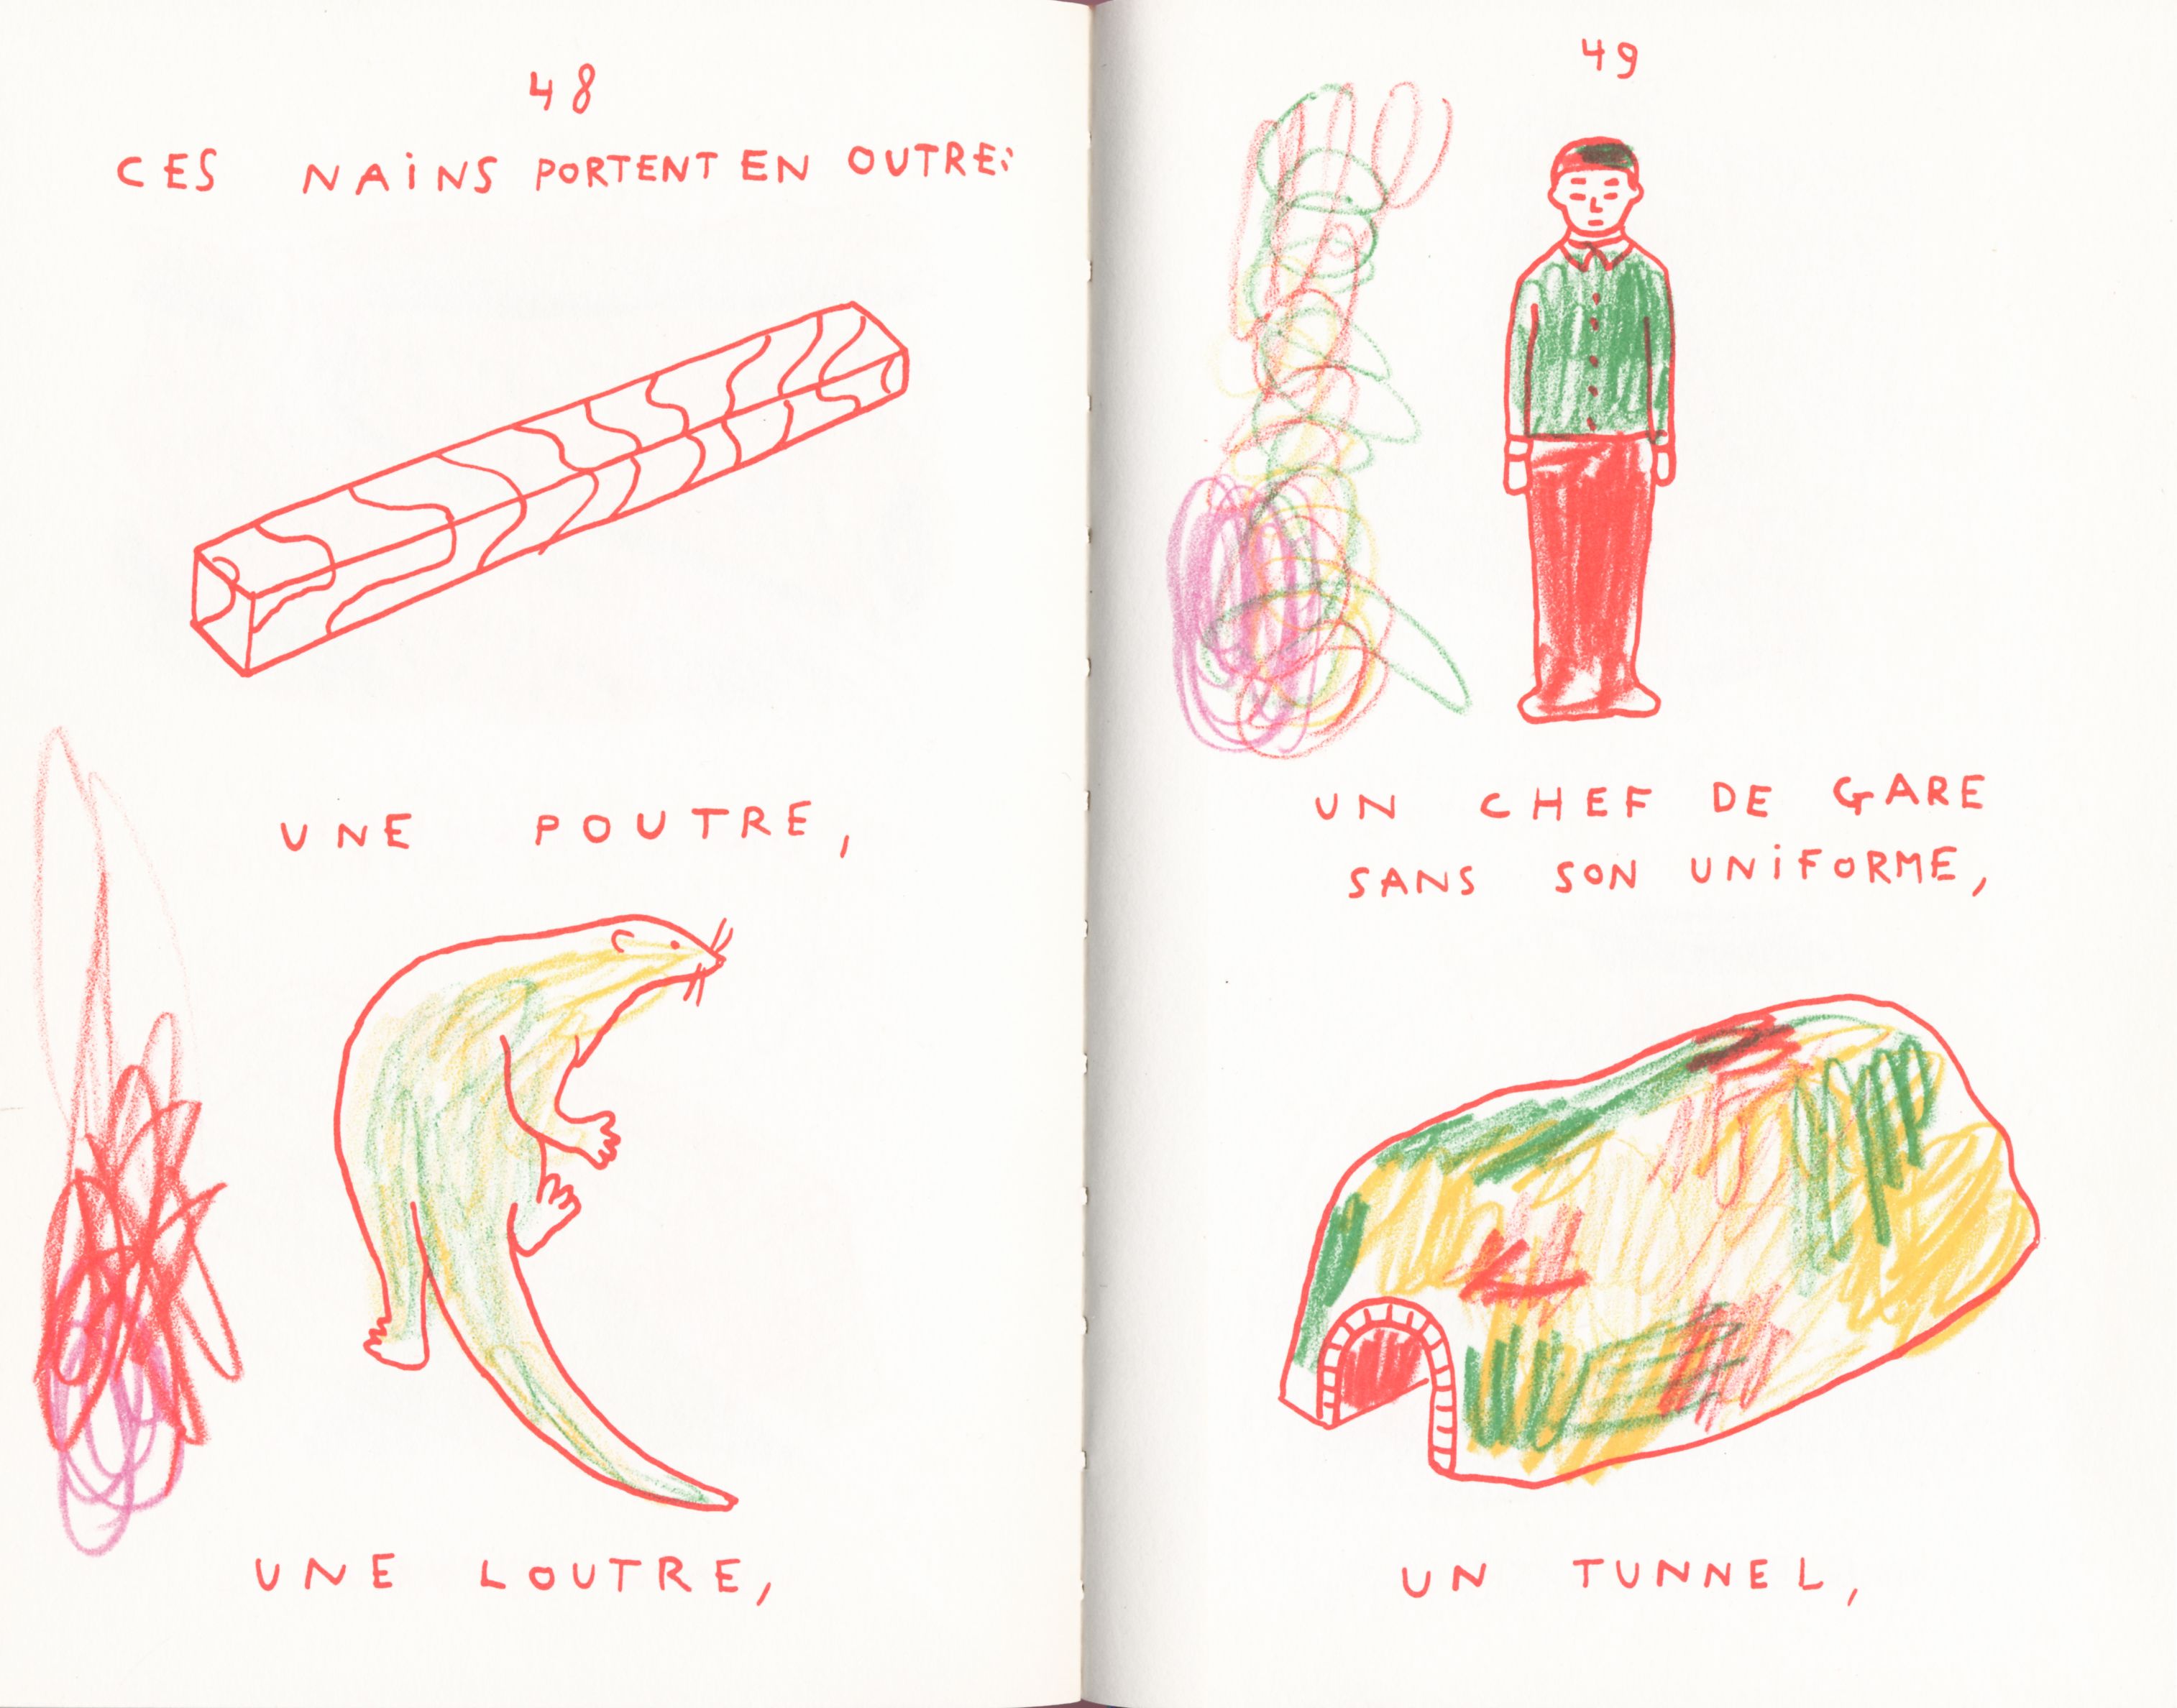 48
CES NAiNS PORTENT EN OUTRE:
UNE POUTRE,
UNE LOUTRE,
49
UN CHEF DE GARE
SANS SON UNiFORME,
UN TUNNEL,